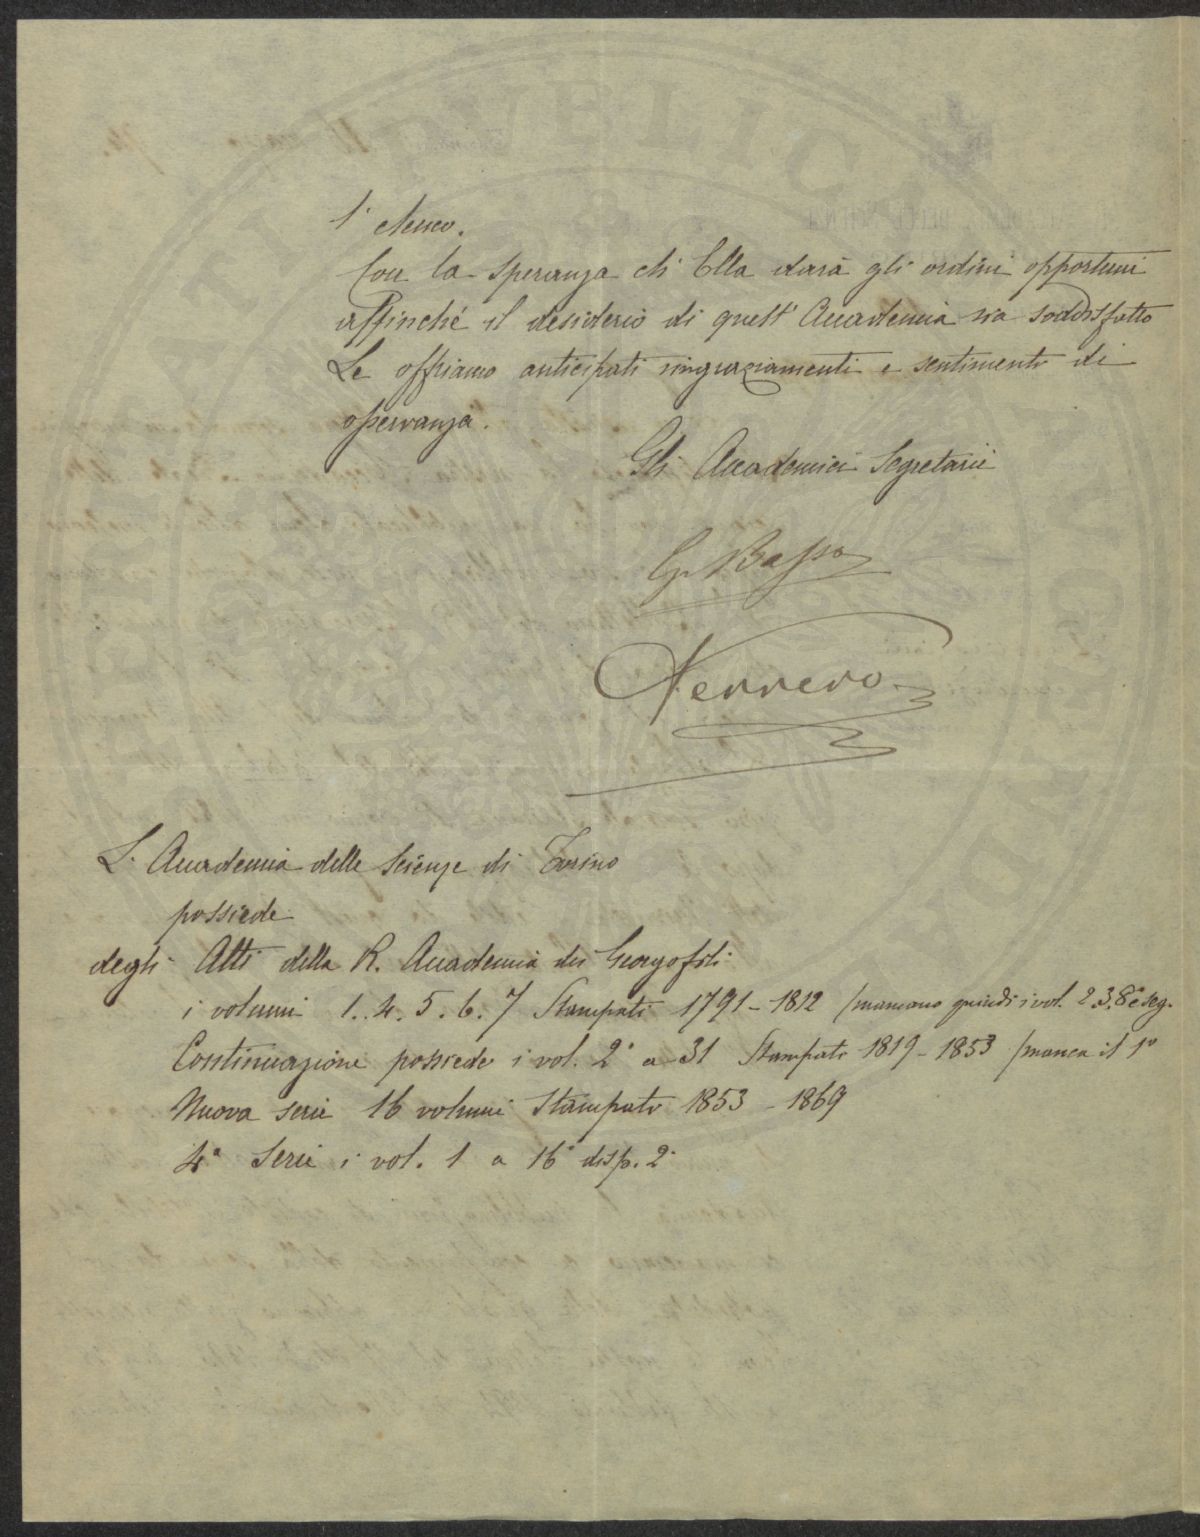 l'elenco.
Con la speranza ch'Ella darà gli ordini opportuni
affinché il desiderio di quest'Accademia sia soddisfatto
Le offriamo anticipati ringraziamenti e sentimenti di
osservanza.
Gli Accademici Segretarii
G. Basso
Ferrero
L'Accademia delle Scienze di Torino
possiede
degli Atti della R. Accademia dei Georgofili
i volumi 1. 4. 5. 6. 7 Stampati 1791-1812 /mancano quindi i vol. 2. 3. 8° e seg.
Continuazione possiede i vol. 2° a 31 Stampati 1819-1853 /manca il 1°
Nuova serie 16 volumi Stampati 1853-1869
4ª Serie i vol. 1 a 16° disp. 2ª